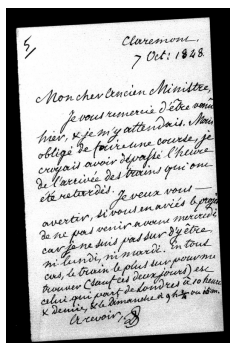 Claremont,
7 Oct: 1848.
Mon cher Ancien Ministre,
Je vous remercie d'être venu
hier, & je m'y attendais. Mais
obligé de faire une course, je
croyais avoir dépassé l'heure
de l'arrivée des trains qui ont
été retardés. Je veux vous
avertir, si vous en aviés le projet
de ne pas venir avant mercredi
car je ne suis pas sur d'y être
ni lundi, ni mardi. En tous
cas, le train le plus sur pour me
trouver (sauf ces deux jours) est
celui qui part de Londres à 10 heures
& demie, & le Dimanche à 9h
A revoir,